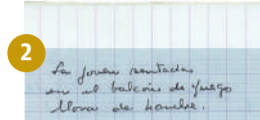 2
La joven sentada
en el balcón de fuego
llora de hombre.